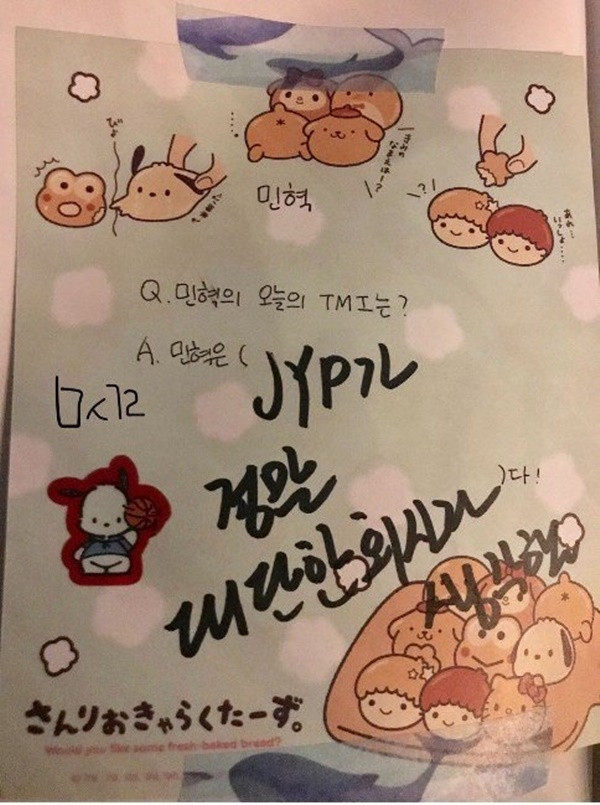 민혁
Q. 민혁의 오늘의 TMI는?
A. 민혁은 (
JYP가
정말
대단한 회사라
생각했
)다!
さんりおきゃらくたーず。
Would you like some fresh-baked bread?